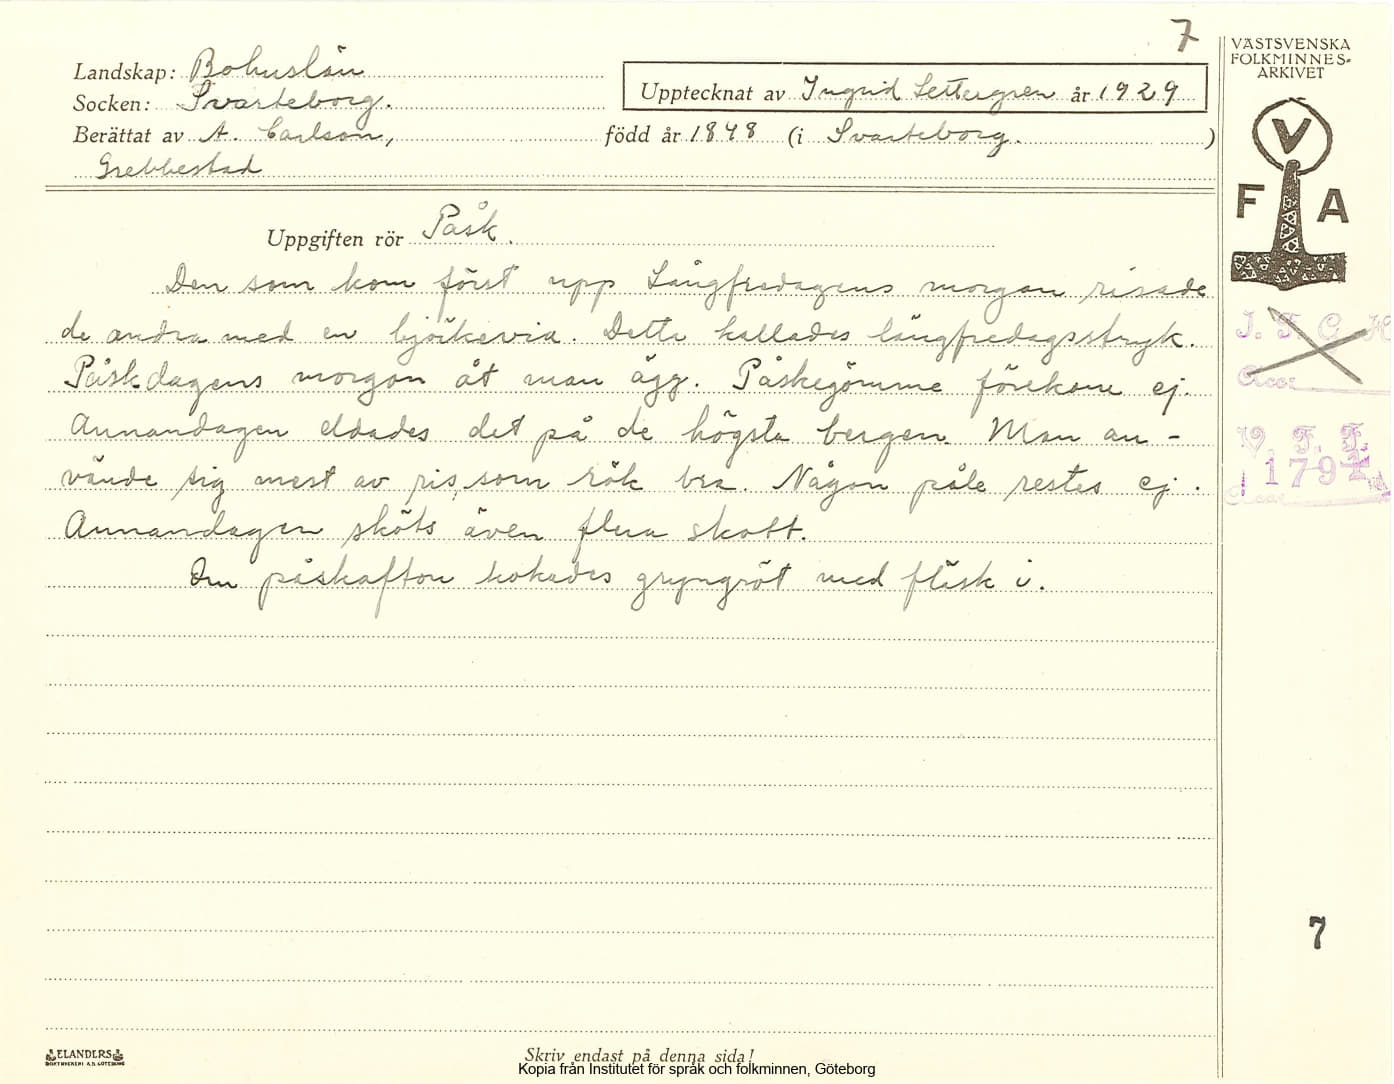 7
Landskap: Bohuslän
Socken: Svarteborg.
Upptecknat av Ingrid Settergren år 1929
Berättat av A. Carlson, född år 1848 (i Svarteborg. )
Grebbestad
Uppgiften rör Påsk.
Den som kom först upp Långfredagens morgon risade
de andra med en björkevia. Detta kallades långfredagsstryk.
Påskdagens morgon åt man ägg. Påskegömme förekom ej.
Annandagen eldades det på de högsta bergen. Man an-
vände sig mest av ris, som rök bra. Någon påle restes ej.
Annandagen sköts även flera skott.
Om påskafton kokades gryngröt med fläsk i.
VÄSTSVENSKA
FOLKMINNES-
ARKIVET
V
F A
I. F. G. H.
Acc.
V. F. F.
1791
Acc.
7
ELANDERS
BOKTRYCKERI A.B. GÖTEBORG
Skriv endast på denna sida!
Kopia från Institutet för språk och folkminnen, Göteborg